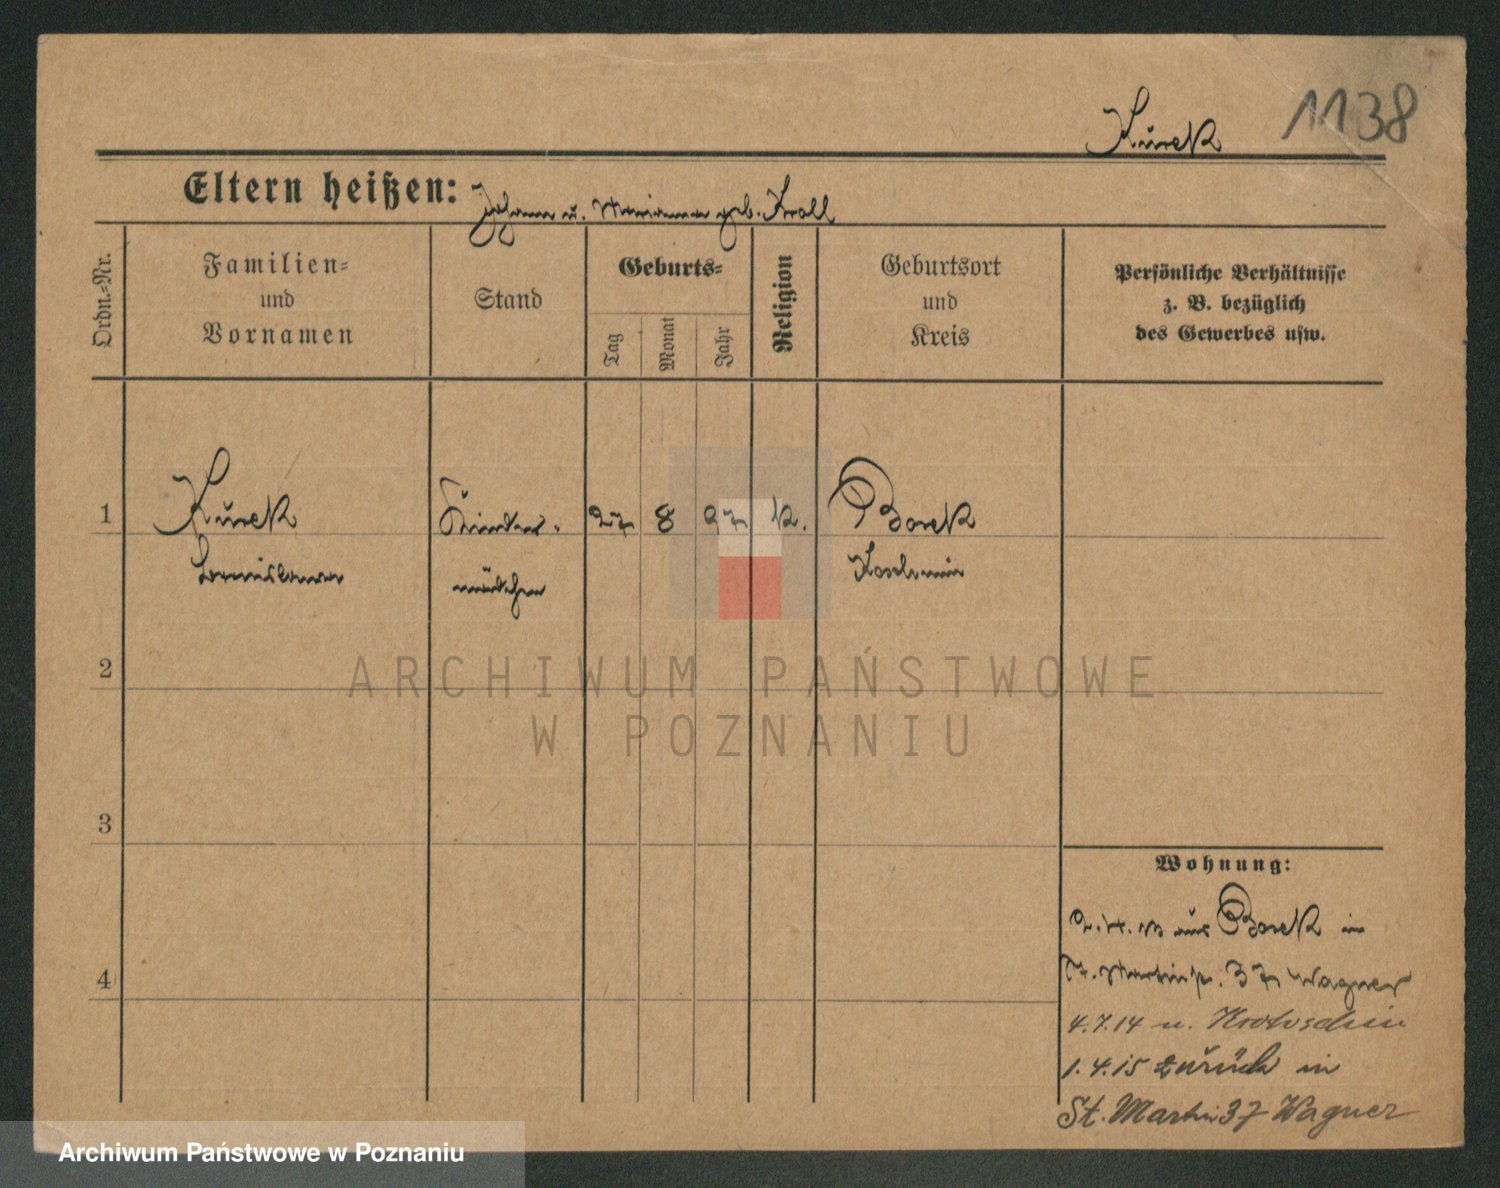 1138
Kurek
Eltern heißen: Johann u. Marianna geb. Kroll
Ordn.-Nr.
Familien-
und
Vornamen
Stand
Geburts-
Tag
Monat
Jahr
Religion
Geburtsort
und
Kreis
Persönliche Verhältnisse
z. B. bezüglich
des Gewerbes usw.
1 Kurek Kinder- 27 8 97 k. Borek
mädchen Koschmin
2
ARCHIWUM PAŃSTWOWE
W POZNANIU
3
4
Wohnung:
2.4.13 aus Borek in
St. Martinstr. 37 Wagner
4.7.14 n. Krotoschin
1.4.15 zurück in
St. Martin 37 Wagner
Archiwum Państwowe w Poznaniu